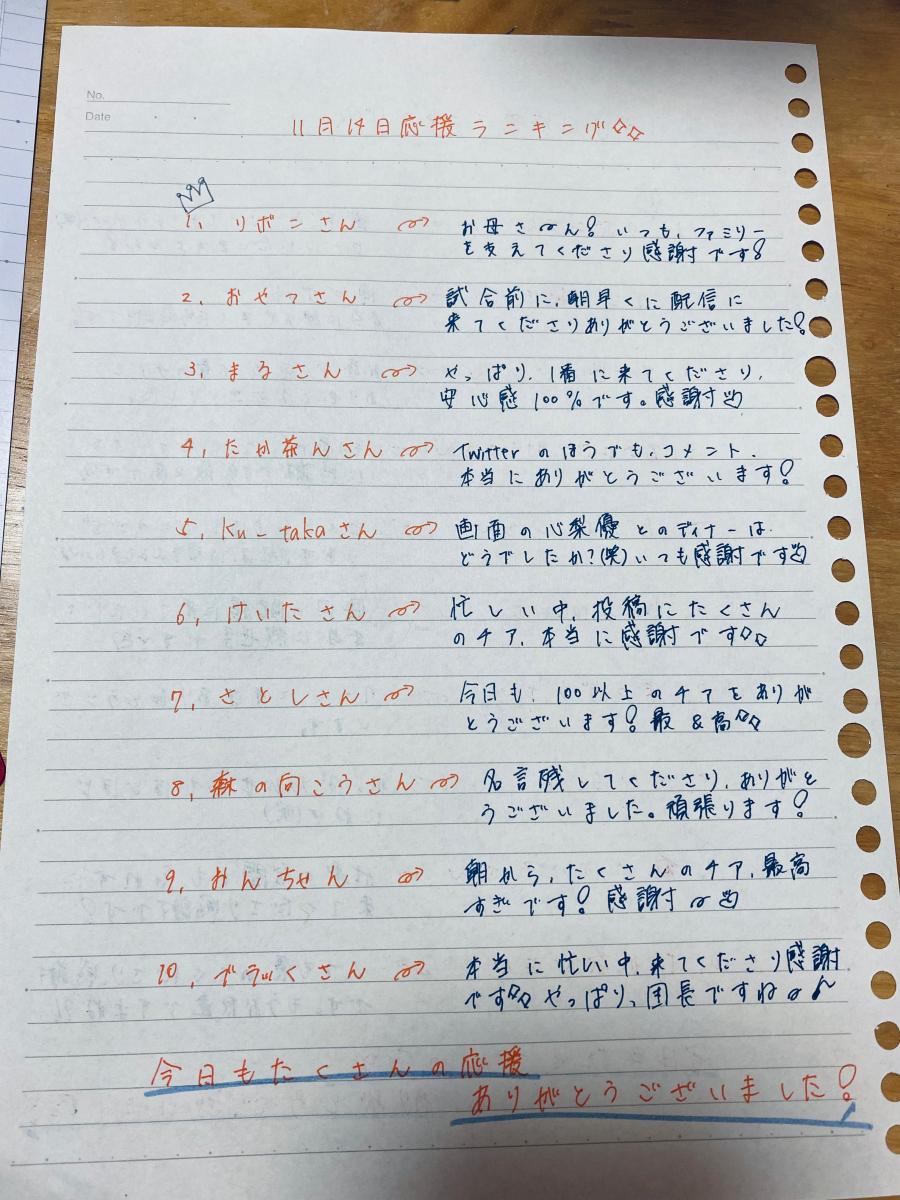 No.
Date
11月14日応援ランキング☆☆
1, リボンさん
お母さ〜ん! いつも、ファミリー
を支えてくださり感謝です!
2, おやつさん
試合前に、朝早くに配信に
来てくださりありがとうございました!
3, まるさん
やっぱり、1番に来てくださり、
安心感100%です。感謝
4, たか茶んさん
Twitterのほうでも、コメント、
本当にありがとうございます!
5, ku-takaさん
画面の心梨優とのディナーは
どうでしたか?(笑)いつも感謝です
6, けいたさん
忙しい中、投稿にたくさん
のチア、本当に感謝です☆☆
7, さとしさん
今日も、100以上のチアをありが
とうございます! 最&高☆☆
8, 森の向こうさん
名言残してくださり、ありがと
うございました。頑張ります!
9, みんちゃん
朝から、たくさんのチア、最高
すぎです! 感謝〜
10, ブラックさん
本当に忙しい中、来てくださり感謝
です☆☆やっぱり、団長ですね〜
今日もたくさんの応援
ありがとうございました!